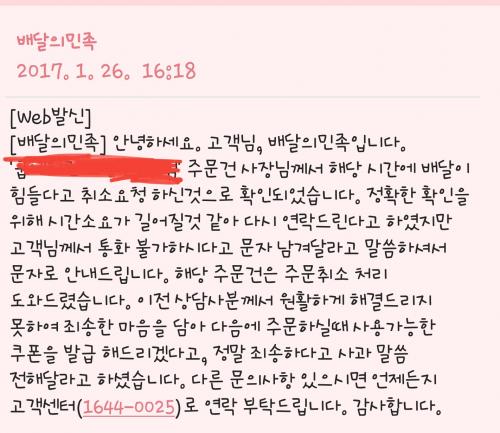 배달의민족
2017. 1. 26. 16:18
[Web발신]
[배달의민족] 안녕하세요. 고객님, 배달의민족입니다.
주문건 사장님께서 해당 시간에 배달이
힘들다고 취소요청 하신것으로 확인되었습니다. 정확한 확인을
위해 시간소요가 길어질것 같아 다시 연락드린다고 하였지만
고객님께서 통화 불가하시다고 문자 남겨달라고 말씀하셔서
문자로 안내드립니다. 해당 주문건은 주문취소 처리
도와드렸습니다. 이전 상담사분께서 원활하게 해결드리지
못하여 죄송한 마음을 담아 다음에 주문하실때 사용가능한
쿠폰을 발급 해드리겠다고, 정말 죄송하다고 사과 말씀
전해달라고 하셨습니다. 다른 문의사항 있으시면 언제든지
고객센터(1644-0025)로 연락 부탁드립니다. 감사합니다.